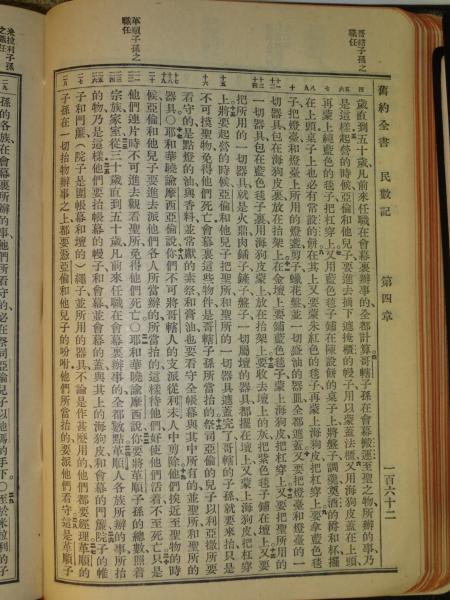 舊約全書 民數記 第四章 一百六十二
哥轄子孫之
職任
歲直到五十歲凡前來任職在會幕裏辦事的全都計算哥轄子孫在會幕搬運至聖之物所辦的事乃
是這樣起營的時候亞倫和他兒子要進去摘下遮掩櫃的幔子用以蒙蓋法櫃又用海狗皮蓋在上頭
再蒙上純藍色的毯子把杠穿上又用藍色毯子鋪在陳設餅的桌子上將盤子調羹奠酒的爵和杯擺
在上頭桌子上也必有常設的餅在其上又要蒙朱紅色的毯子再蒙上海狗皮把杠穿上要拿藍色毯
子把燈臺和燈臺上所用的燈盞剪子蠟花盤並一切盛油的器皿全都遮蓋又要把燈臺和燈臺的一
切器具包在海狗皮裏放在抬架上在金壇上要鋪藍色毯子蒙上海狗皮把杠穿上又要把聖所用的
一切器具包在藍色毯子裏用海狗皮蒙上放在抬架上要收去壇上的灰把紫色毯子鋪在壇上又要
把所用的一切器具就是火鼎肉鍤子鏟子盤子一切屬壇的器具都擺在壇上又蒙上海狗皮把杠穿
上將要起營的時候亞倫和他兒子把聖所和聖所的一切器具遮蓋完了哥轄的子孫就要來抬只是
不可摸聖物免得他們死亡會幕裏這些物件是哥轄子孫所當抬的祭司亞倫的兒子以利亞撒所要
看守的是點燈的油與香料並當獻的素祭和膏油也要看守全帳幕與其中所有的並聖所和聖所的
器具〇耶和華曉諭摩西亞倫說你們不可將哥轄人的支派從利未人中剪除他們挨近至聖物的時
候亞倫和他兒子要進去派他們各人所當辦的所當抬的這樣待他們好使他們活着不至死亡只是
革順子孫之
職任
他們連片時不可進去觀看聖所免得他們死亡〇耶和華曉諭摩西說你要將革順子孫的總數照着
宗族家室從三十歲直到五十歲凡前來任職在會幕裏辦事的全都數點革順人各族所辦的事所抬
的物乃是這樣他們要抬帳幕的幔子和會幕並會幕的蓋與其上的海狗皮和會幕的門簾院子的帷
子和門簾(院子是圍帳幕和壇的)繩子並所用的器具不論是作甚麼用的他們都要經理革順的
子孫在一切抬物辦事之上都要憑亞倫和他兒子的吩咐他們所當抬的要派他們看守這是革順子
米拉利子孫
之職任
孫的各族在會幕裏所辦的事他們所看守的必在祭司亞倫兒子以他瑪的手下〇至於米拉利的子